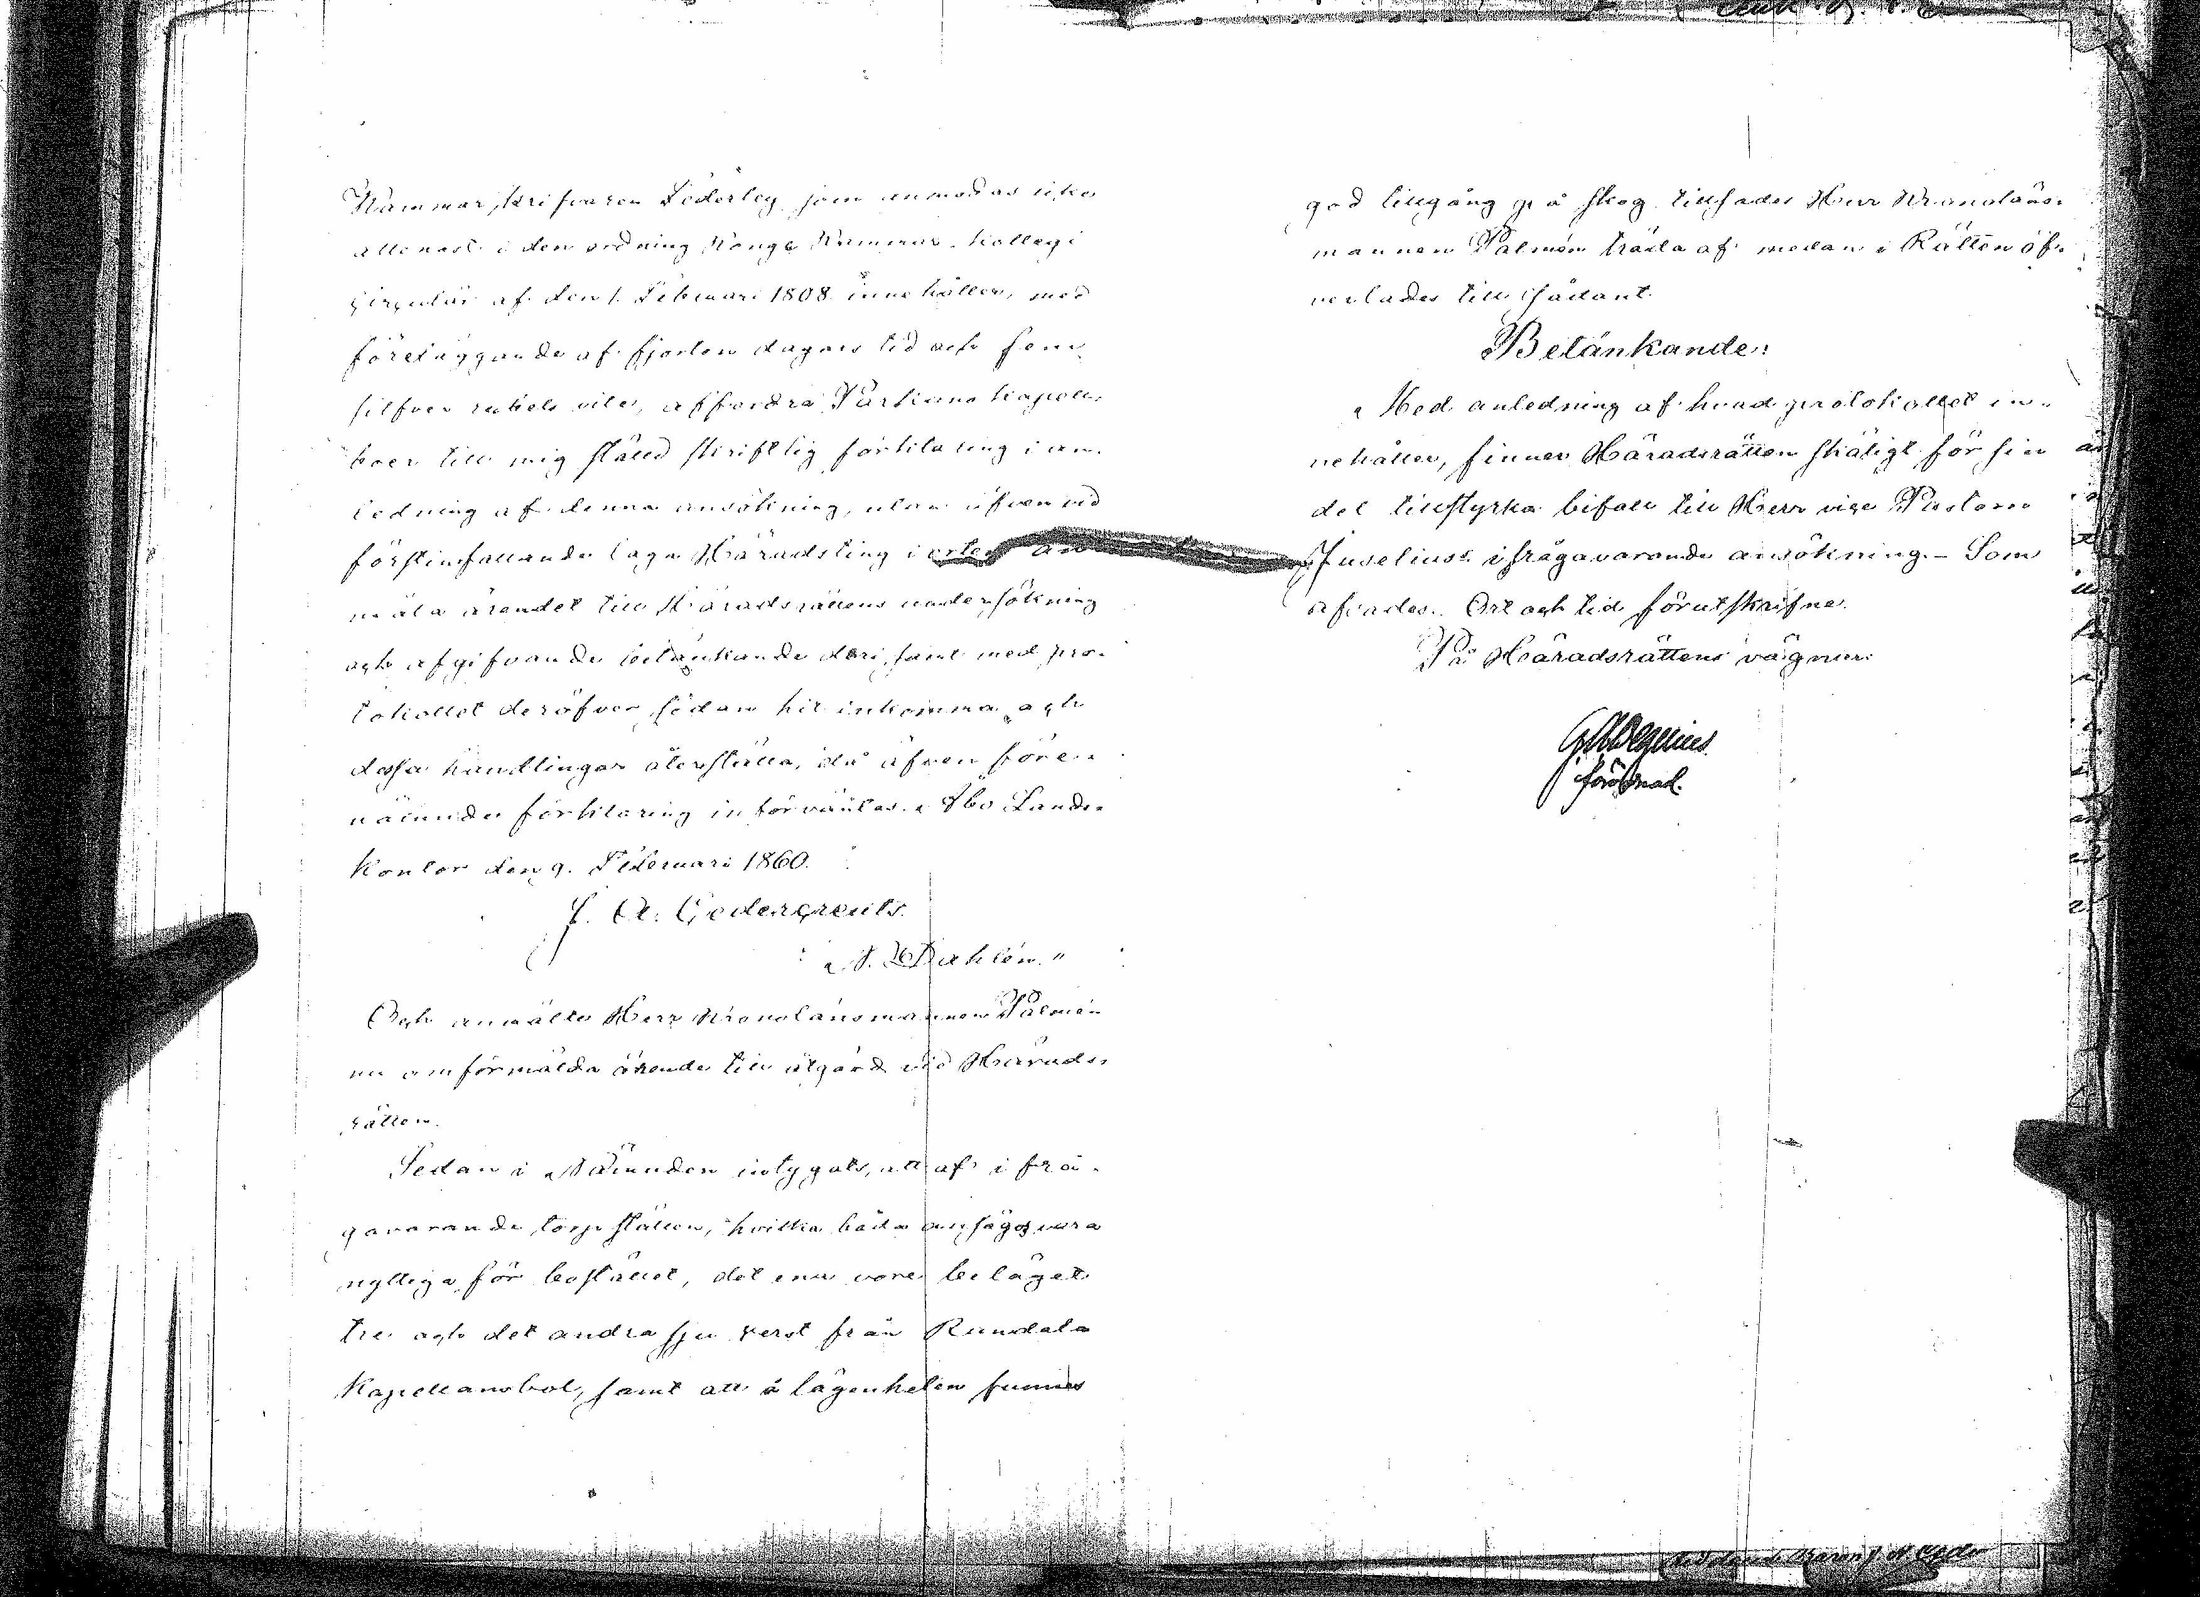 Kammarskrifvaren Söderley som anmodas icke
allenast i den ordning Konge Kammar-Kollegi
Circulär af den 1. Februari 1808 innehåller, med
föreläggande af fjorton dagars tid och fem
silfver rubels vite, affordra Parkano kapell-
boer till mig ställd skriftlig förklaring i an-
ledning af denna ansökning, utan äfven vid
förstinfallande laga Häradsting i orten an-
mäla ärendet till Häradsrättens undersökning
och afgifvande betänkande deri, samt med pro-
tokollet deröfver sedan hit inkomma och
dessa handlingar återställa, då äfven före-
nämnde förklaring införväntas. Åbo Lands-
kontor den 9. Februari 1860.
J. A. Cedercreutz.
N. H. Dahlén."
Och anmälte Herr Kronolänsmannen Palmén
nu omförmälda ärende till åtgärd vid Härads-
rätten.
Sedan i Nämnden intygats, att af i frå-
gavarande torpställen, hvilka båda ansågos vara
nyttiga för bostället, det ena vore beläget
tre och det andra sju verst från
Kapellansbol, samt att å lägenheten funnes
god tillgång på skog, tillsades Herr Kronoläns-
mannen Palmén träda af medan i Rätten öf-
verlades till sådant
Betänkande:
Med anledning af hvad protokollet in-
nehåller, finner Häradsrätten skäligt för sin
del tillstyrka bifall till Herr vice Pastorn
Juselius's ifrågavarande ansökning. – Som
afsades. Ort och tid förutskrifne.
På Häradsrättens vägnar:
förordnad.